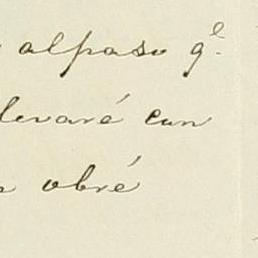 al paso q.e
llevaré con
obré